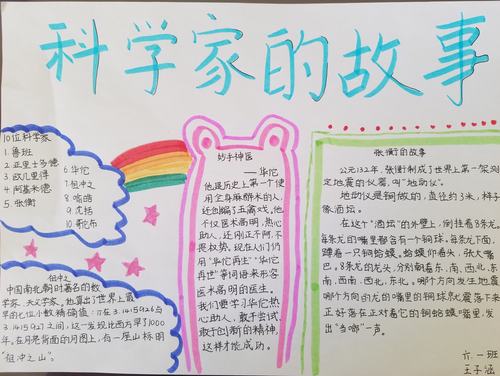 科学家的故事
10位科学家
1.鲁班
2.亚里士多德
3.欧几里得
4.阿基米德
5.张衡
6.华佗
7.祖冲之
8.喻皓
9.沈括
10.哥伦布
祖冲之
中国南北朝时著名的数
学家、天文学家,他算出了世界上最
早的七位小数精确值:π在3.1415926与
3.1415927之间,这一发现比西方早了1000
年。在月是背面的月图上,有一座山标明
"祖冲之山"。
妙手神医
——华佗
他是历史上第一个使
用全身麻醉术的人,
还创编了五禽戏,他不
仅医术高明,热心
助人,还刚正不阿,不
畏权势。现在人们仍
用"华佗再生""华佗
再世"等词语来形容
医术高明的医生。
我们要学习华佗热
心助人,敢于尝试,
敢于创新的精神,
这样才能成功。
张衡的故事
公元132年,张衡制成了世界上第一架测
定地震的仪器,叫"地动仪"。
地动仪是铜做的,直径约3米,样子
像酒坛。
在这个"酒坛"的外壁上,倒挂着8条龙。
每条龙的嘴里都含有一个铜球。每条龙下面,
蹲着一只铜蛤蟆。蛤蟆仰着头,张大嘴
巴。8条龙的龙头,分别朝着东、南、西、北、东
南、西南、西北、东北。哪个方向发生地震
哪个方向的龙的嘴里的铜球就震落下来
正好落在正对着它的铜蛤蟆嘴里,发
出"当啷"一声。
六.一班
王子涵